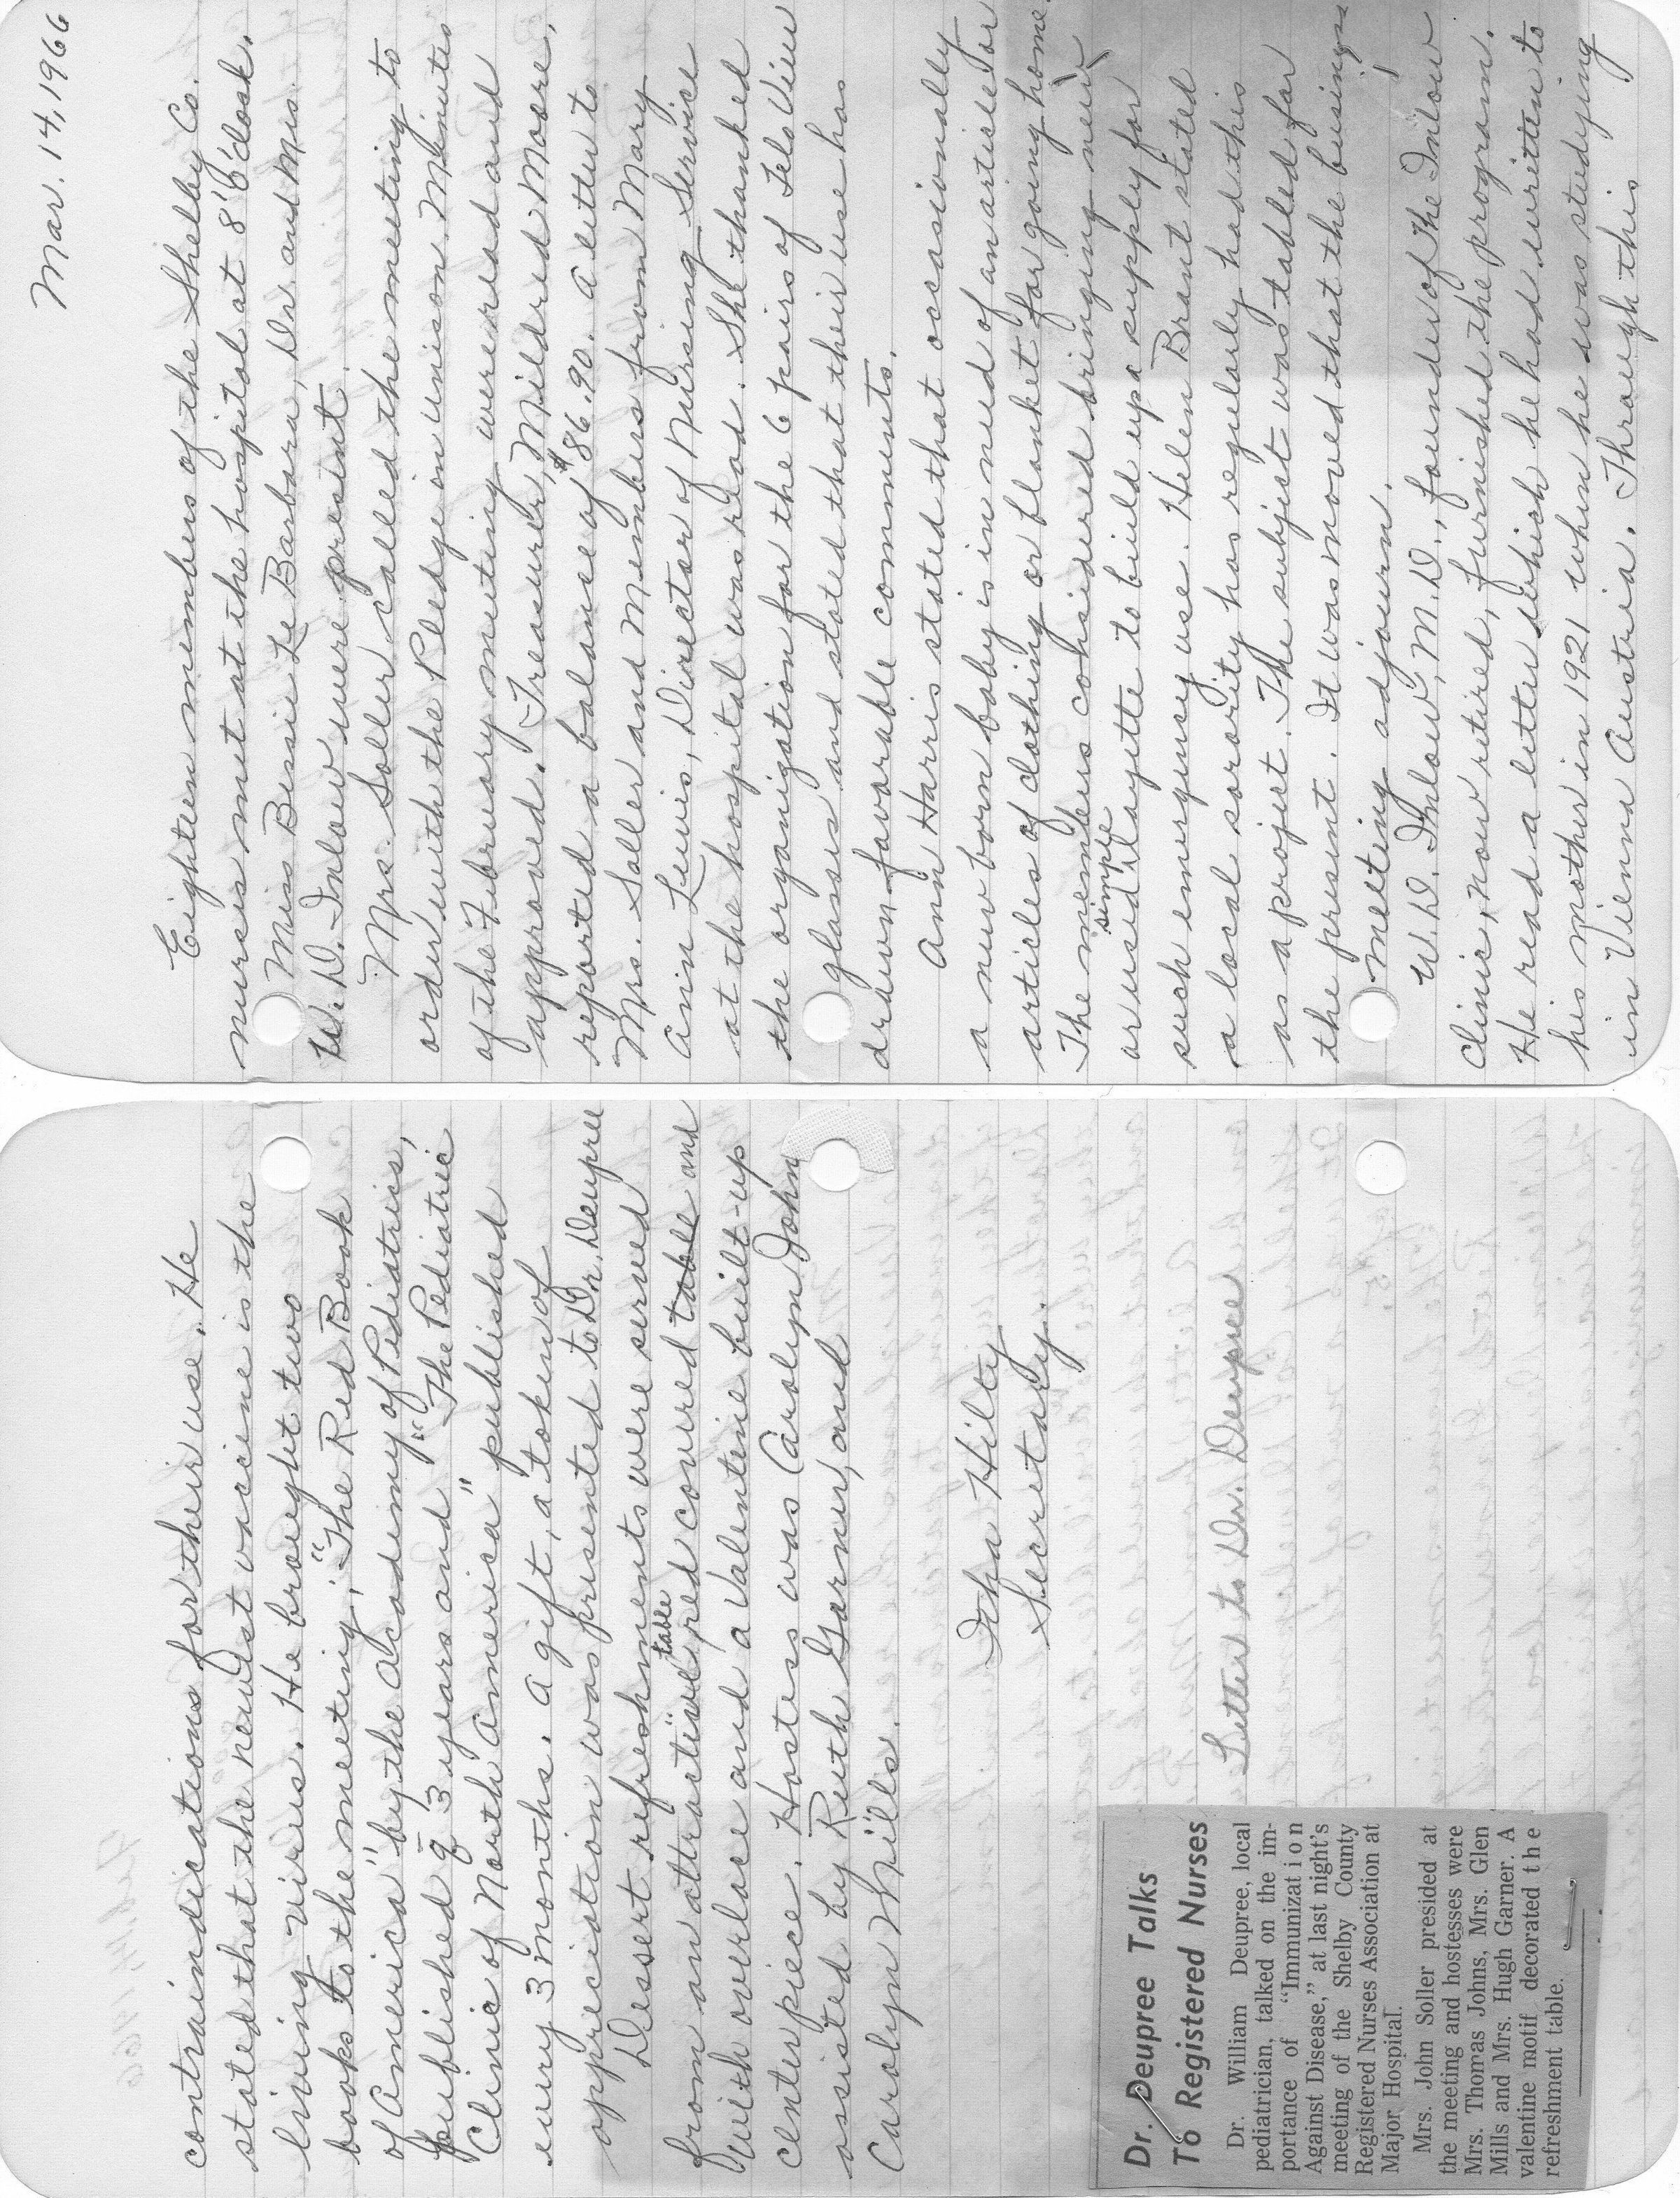 contraindications for their use. He
stated that the newest vaccine is the
living virus. He brought two
books to the meeting; "The Red Book
of America" by the Academy of Pediatrics,
published q 3 years and "The Pediatric
Clinic of North America" published
every 3 months. A gift, a token of
appreciation was presented to Dr. Deupree
Dessert refreshments were served
from an attractive table, red covered table and
with overlace and a Valentine built-up
centerpiece. Hostess was Carolyn John
assisted by Ruth Garner, and
Carolyn Mills.
Itha Hilty
Secretary.
Letter to Dr. Deupree
Dr. Deupree Talks
To Registered Nurses
Dr. William Deupree, local
pediatrician, talked on the im-
portance of "Immunization
Against Disease," at last night's
meeting of the Shelby County
Registered Nurses Association at
Major Hospital.
Mrs. John Soller presided at
the meeting and hostesses were
Mrs. Thomas Johns, Mrs. Glen
Mills and Mrs. Hugh Garner. A
valentine motif decorated the
refreshment table.
Mar. 14, 1966
Eighteen members of the Shelby Co.
nurses met at the hospital at 8 o'clock.
Miss Bessie Le Barbara, Dr and Mrs.
W. D. Inlow were present.
Mrs. Soller called the meeting to
order with the Pledge in unison. Minutes
of the February meeting were read and
approved. Treasurer, Mildred Moore,
reported a balance of $86.90. A letter to
Mrs. Soller and Members from Mary
Ann Lewis, Director of Nursing Service
at the hospital was read. She thanked
the organization for the 6 pairs of Telo View
glasses and stated that their use has
drawn favorable comments.
Ann Harris stated that occasionally
a new born baby is in need of an article or
articles of clothing or blanket for going home.
The members considered bringing new
or used simple layette to build up a supply for
such emergency use. Helen Brant stated
a local sorority has regularly had this
as a project. The subject was tabled for
the present. It was moved that the business
meeting adjourn.
W. D. Inlow, M.D., founder of The Inlow
Clinic, now retired, furnished the program.
He read a letter which he had written to
his mother in 1921 when he was studying
in Vienna Austria. Through this